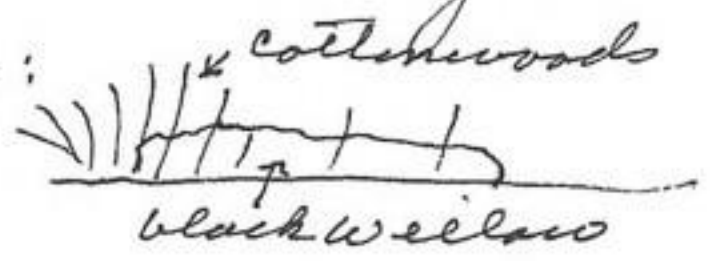 cottonwoods
black willow